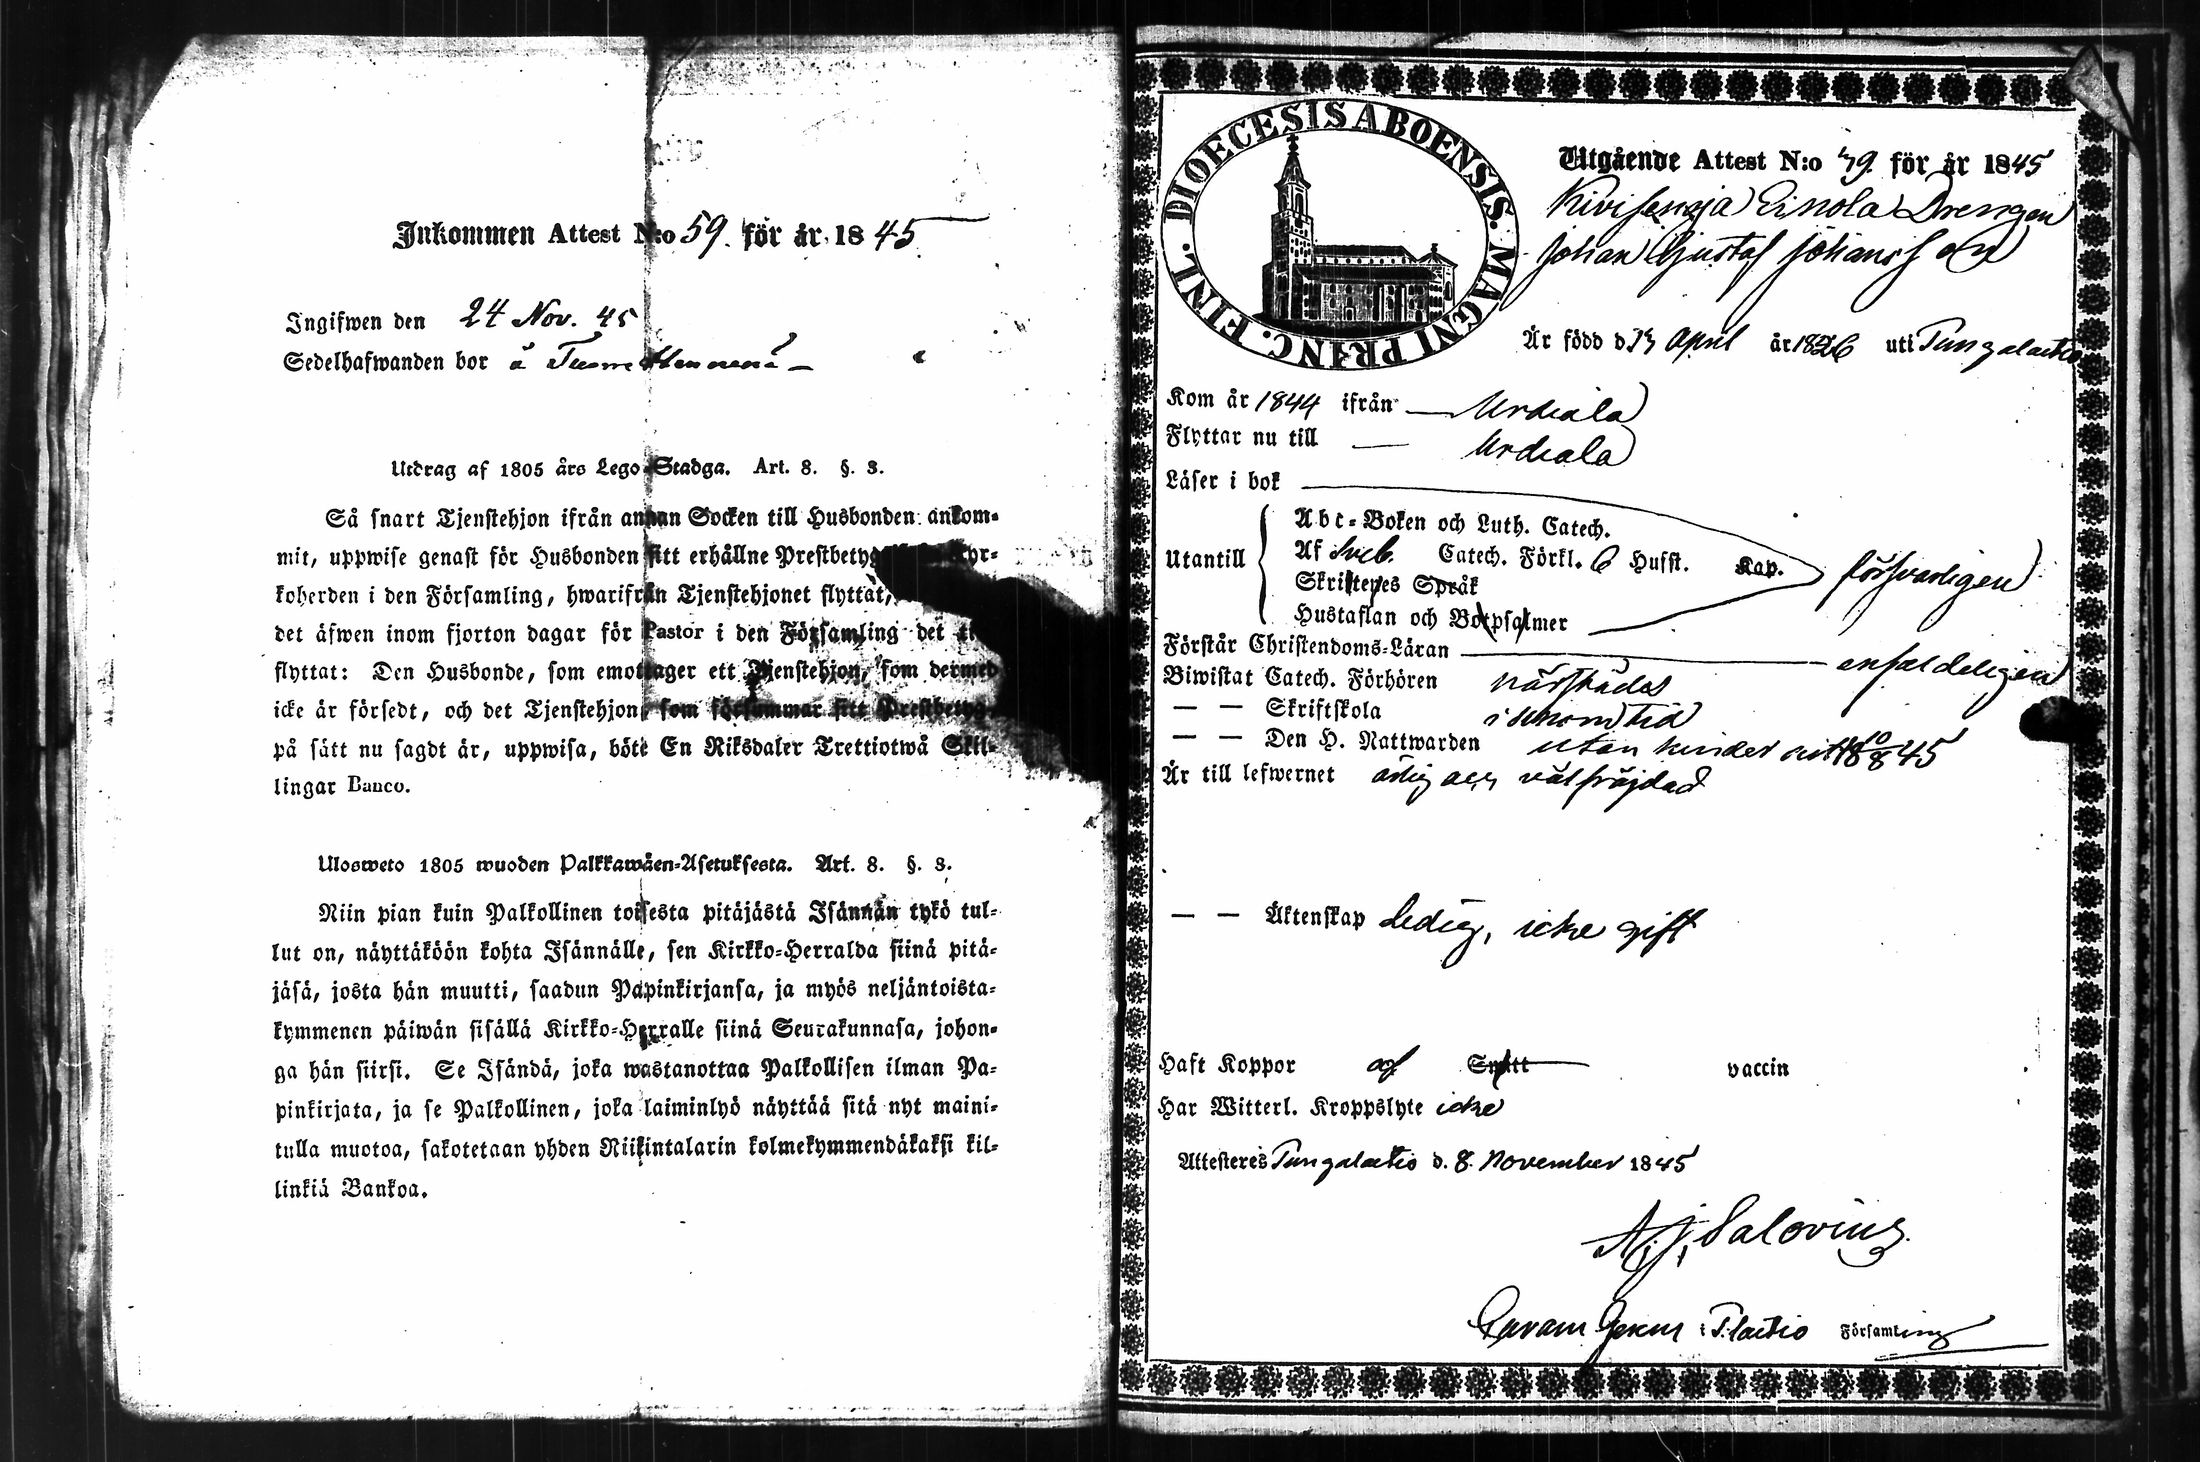 Inkommen Attest N:o 59. för år 1845
Ingifwen den 24 Nov. 45
Sedelhafwanden bor å
Utdrag af 1805 års Lego-Stadga. Art. 8. §. 3.
Så snart Tjenstehjon ifrån annan Socken till Husbonden ankom-
mit, uppwise genast för Husbonden sitt erhållne Prestbetyg
koherden i den Församling, hwarifrån Tjenstehjonet flyttat,
det äfwen inom fjorton dagar för Pastor i den Församling det
flyttat: Den Husbonde, som emottager ett Tjenstehjon, som dermed
icke är försedt, och det Tjenstehjon, som försummar sitt Prestbetyg
på sätt nu sagdt är, uppwisa, böte En Riksdaler Trettiotwå Skil-
lingar Banco.
Ulosweto 1805 wuoden Palkkawäen-Asetuksesta. Art. 8. §. 3.
Niin pian kuin Palkollinen toisesta pitäjästä Isännän tykö tul-
lut on, näyttäköön kohta Isännälle, sen Kirkko-Herralda siinä pitä-
jäsä, josta hän muutti, saadun Papinkirjansa, ja myös neljäntoista-
kymmenen päiwän sisällä Kirkko-Herralle siinä Seurakunnasa, johon-
ga hän siirsi. Se Isändä, joka wastanottaa Palkollisen ilman Pa-
pinkirjata, ja se Palkollinen, joka laiminlyö näyttää sitä nyt maini-
tulla muotoa, sakotetaan yhden Riikintalarin kolmekymmendäkaksi kil-
linkiä Bankoa.
DIOECESIS ABOENSIS. MAGNI PRINC. FINL.
Utgående Attest N:o 49. för år 1845
Kivisenoja Einola Drengen
Johan Gustaf Johansson
Är född d. 13 April år 1826 uti Pungalaitio
Kom år 1844 ifrån Urdiala
Flyttar nu till Urdiala
Läser i bok
Utantill
Abc-Boken och Luth. Catech.
Af Sveb. Catech. Förkl. 6 Hufst. Kap. försvarligen
Skriftenes Språk
Hustaflan och Botpsalmer
Förstår Christendoms-Läran enfaldeligen
Biwistat Catech. Förhören närstädes
— — Skriftskola i sinom tid
— — Den H. Nattwarden utan hinder sist 10/8 45
Är till lefwernet ärlig och välfräjdad
— — Äktenskap Ledig, icke gift
Haft Koppor af Smitt vaccin
Har Witterl. Kroppslyte icke
Attesteres Pungalaitio d. 8. November 1845
A. J. Salovius.
i P:laitio Församling